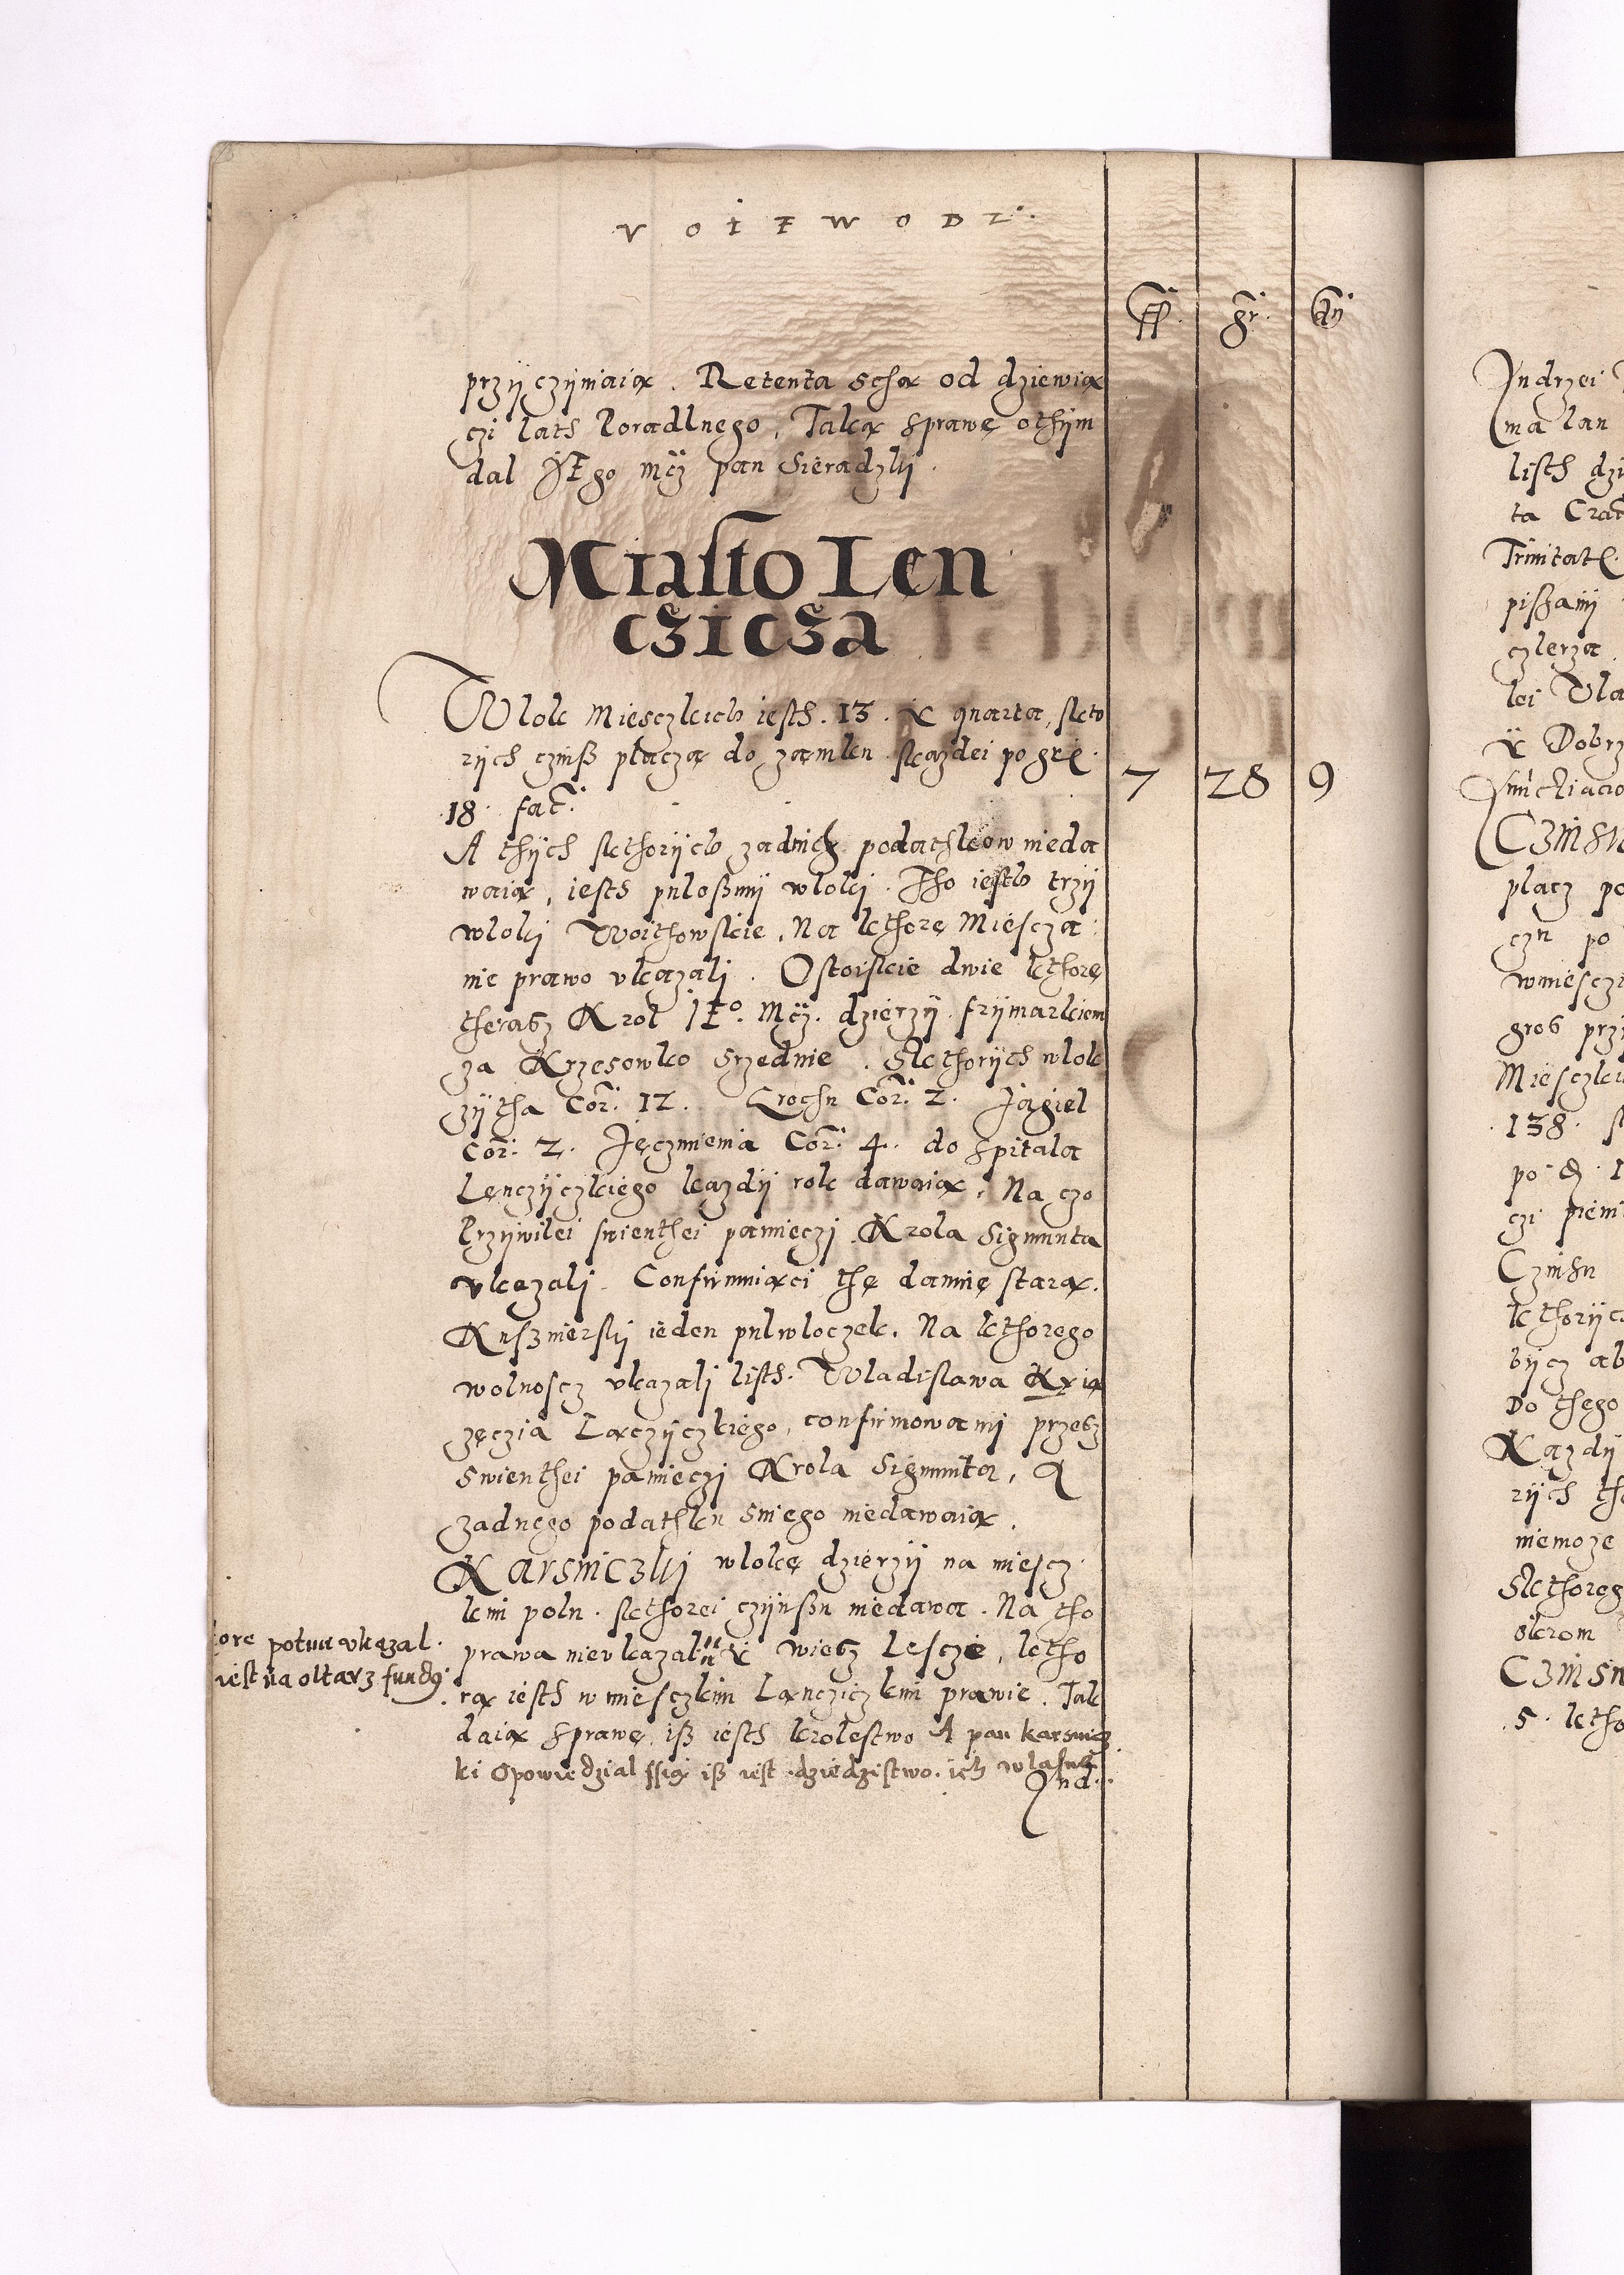 VOIEWODZ.
ff. gr. đ
przÿczÿniaią. Retenta sthą od dziewią
czi lath Poradlnego, Taką sprawę othÿm
dal JEgo mcz pan Sieradzkj.
Miasto Len
czicza
Wlok Miesczkich iesth. 13. ÿ quarta, skto
rÿch czinß płaczą do zamku skazdei po gr.
18. fac. 7 28 9
A thÿch skthorÿch zadnich podathkow nieda
waią, iesth puloßmÿ wlokj. Tho iesth trzÿ
wlokj Woithowskie, Na kthorę Miescza
nie prawo vkazalj. Ostoiskie dwie kthorę
theraz Krol JEo. Mcz. dzierzÿ frÿmarkiem
za Krzesowko srzednie. Skthorÿch wlok
zÿtha Cor. 12. Grochu Cor. 2. Jagiel
Cor. 2. Jęczmienia Cor. 4. do spitala
Lęnczÿczkiego kazdÿ rok dawaią, Na czo
Przÿwilei swienthei pamięczj Krola Sigmunta
vkazalj. Confirmuiąci thę danię starą.
Kuszmierskj ieden pulwloczek. Na kthorego
wolnoscz vkazalj listh. Wladislawa Kxią
zęczia Lączÿczkiego, confirmowanÿ przesz
swienthei pamięczj Krola Sigmunta, A
zadnego podathku sniego niedawaią.
Karsniczkj wlokę dzierzÿ na miescz
kim polu. skthorei czÿnßu niedawa. Na tho
prawa nievkazal. ÿ wiesz Lescze, ktho
ra iesth w miesczkim Lanczÿczkim prawie. Tak
daią sprawę, iß iesth krolestwo A pan karsnicz
ki Opowiedzial ssią iß iest dziedzistwo. ich wlasne
And.
tore potim vkazal.
iest na oltarz
Andrzei
ma lan
listh
ta
Trinitat
pißanÿ
czkrza
kei
ÿ Dobrz
Czinsu
placz po
czu po
wmiescz
gros przÿ
Miesczki
138.
po
czi pieni
Czinsu
kthorÿch
bÿcz
Do thego
Kazdÿ
rÿch
niemoze
Skthoreg
okrom
Czins
5. ktho